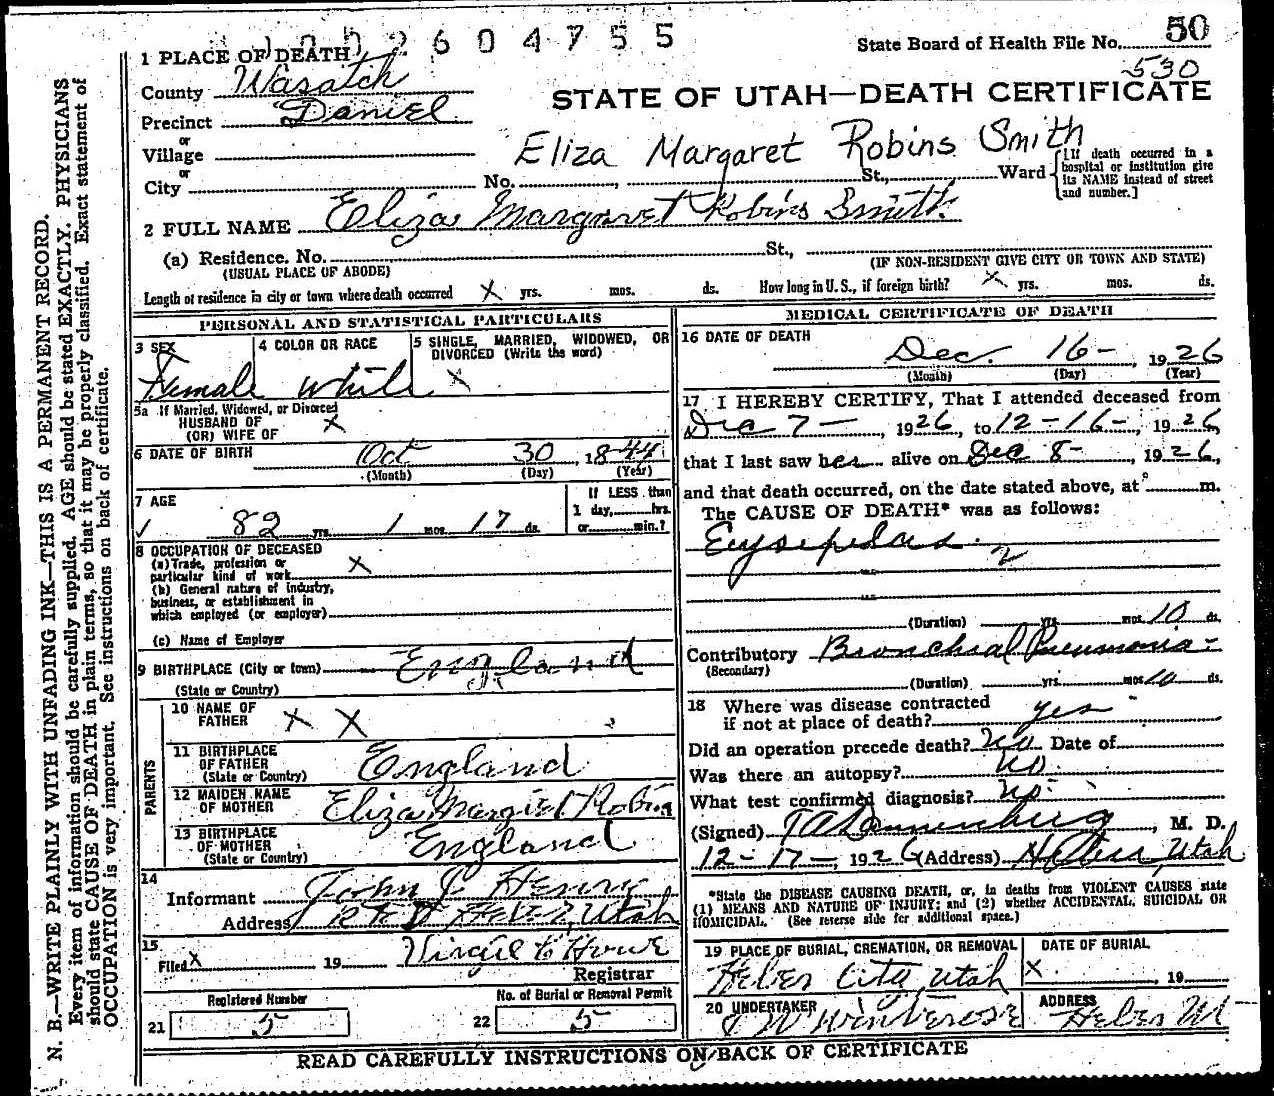 2604755
State Board of Health File No. 50
530
1 PLACE OF DEATH
County Wasatch
STATE OF UTAH—DEATH CERTIFICATE
Precinct Daniel
or
Village
Eliza Margaret Robins Smith
or
City No. St., Ward
[If death occurred in a hospital or institution give its NAME instead of street and number.]
2 FULL NAME Eliza Margaret Robins Smith
(a) Residence. No. St.,
(USUAL PLACE OF ABODE) (IF NON-RESIDENT GIVE CITY OR TOWN AND STATE)
Length of residence in city or town where death occurred X yrs. mos. ds. How long in U. S., if foreign birth? X yrs. mos. ds.
PERSONAL AND STATISTICAL PARTICULARS
3 SEX 4 COLOR OR RACE 5 SINGLE, MARRIED, WIDOWED, OR
DIVORCED (Write the word)
Female White X
5a If Married, Widowed, or Divorced
HUSBAND OF
(OR) WIFE OF X
6 DATE OF BIRTH Oct 30, 1844
(Month) (Day) (Year)
7 AGE If LESS than
1 day, hrs.
82 yrs. 1 mos. 17 ds. or min.?
8 OCCUPATION OF DECEASED
(a) Trade, profession or
particular kind of work X
(b) General nature of industry,
business, or establishment in
which employed (or employer)
(c) Name of Employer
9 BIRTHPLACE (City or town) England
(State or Country)
PARENTS
10 NAME OF
FATHER X X
11 BIRTHPLACE
OF FATHER England
(State or Country)
12 MAIDEN NAME
OF MOTHER Eliza Margret Robins
13 BIRTHPLACE
OF MOTHER England
(State or Country)
14
Informant John J. Henry
Address R F D Heber, Utah
15
Filed X 19 Virgil
Registrar
Registered Number No. of Burial or Removal Permit
21 5 22 5
MEDICAL CERTIFICATE OF DEATH
16 DATE OF DEATH
Dec. 16-, 1926
(Month) (Day) (Year)
17 I HEREBY CERTIFY, That I attended deceased from
Dec 7-, 1926, to 12-16-, 1926,
that I last saw her alive on Dec 8-, 1926,
and that death occurred, on the date stated above, at m.
The CAUSE OF DEATH* was as follows:
Erysipelas.
(Duration) yrs. mos. 10 ds.
Contributory Bronchial Pneumonia-
(Secondary)
(Duration) yrs. mos. 10 ds.
18 Where was disease contracted
if not at place of death? yes
Did an operation precede death? No Date of
Was there an autopsy? No.
What test confirmed diagnosis? No.
(Signed) T A Dannenburg, M. D.
12-17-, 1926 (Address) Heber, Utah
*State the DISEASE CAUSING DEATH, or, in deaths from VIOLENT CAUSES state
(1) MEANS AND NATURE OF INJURY; and (2) whether ACCIDENTAL, SUICIDAL OR
HOMICIDAL. (See reverse side for additional space.)
19 PLACE OF BURIAL, CREMATION, OR REMOVAL DATE OF BURIAL
Heber City, Utah X, 19
20 UNDERTAKER ADDRESS
Heber Ut-
READ CAREFULLY INSTRUCTIONS ON BACK OF CERTIFICATE
N. B.—WRITE PLAINLY WITH UNFADING INK—THIS IS A PERMANENT RECORD.
Every item of information should be carefully supplied. AGE should be stated EXACTLY. PHYSICIANS
should state CAUSE OF DEATH in plain terms, so that it may be properly classified. Exact statement of
OCCUPATION is very important. See instructions on back of certificate.